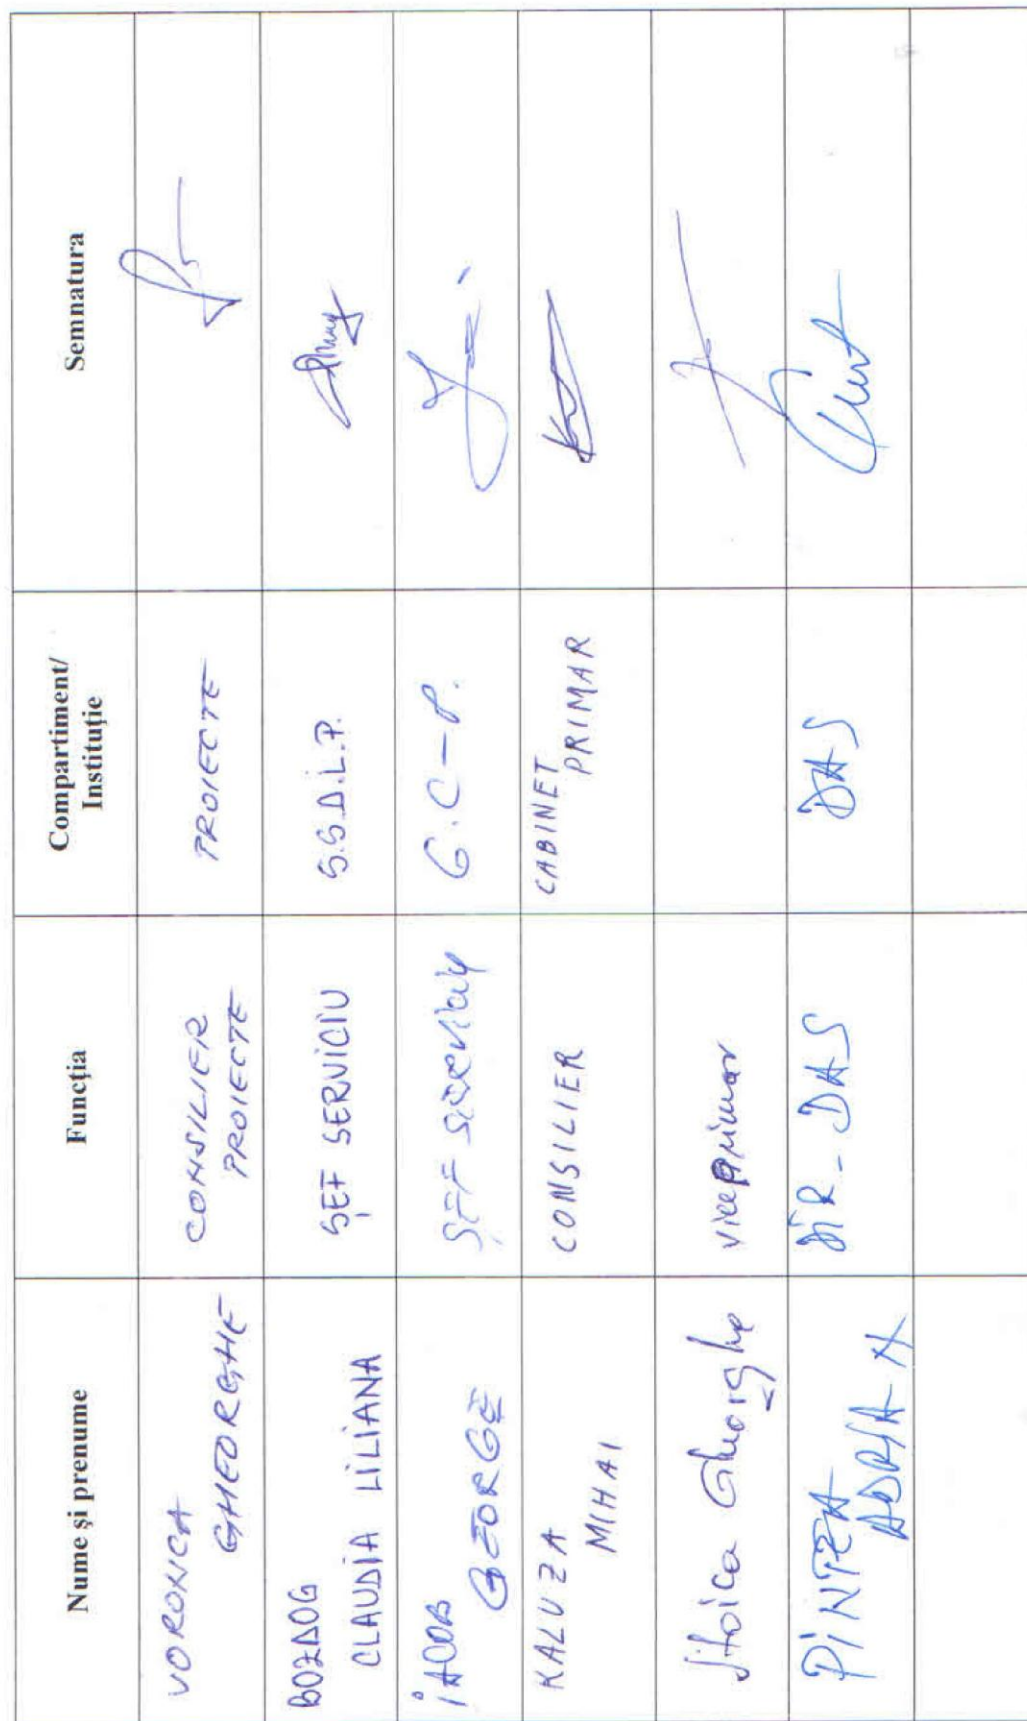 Nume și prenume
Funcția
Compartiment/
Instituție
Semnatura
VORONICA
GHEORGHE
CONSILIER
PROIECTE
PROIECTE
BOZDOG
CLAUDIA LILIANA
ȘEF SERVICIU
S.S.D.L.P.
IACOB
GEORGE
ȘEF serviciu
G.C-P.
KALUZA
MIHAI
CONSILIER
CABINET
PRIMAR
Stoica Gheorghe
viceprimar
PINTEA
ADRIAN
DIR-DAS
DAS